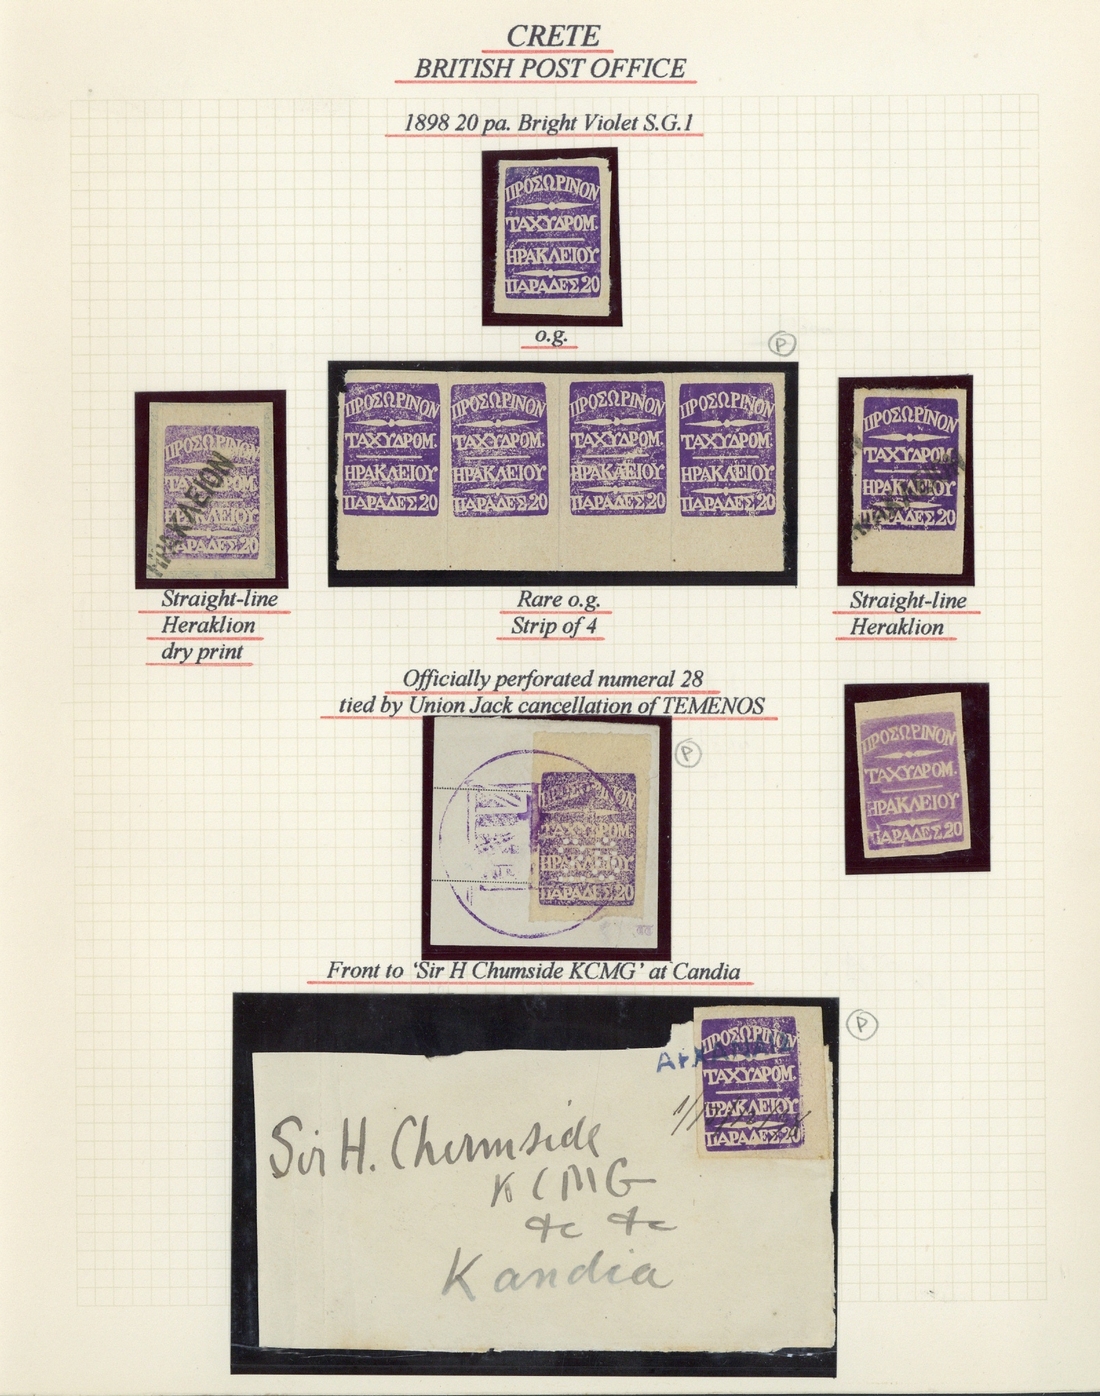 CRETE
BRITISH POST OFFICE
1898 20 pa. Bright Violet S.G.1
ΠΡΟΣΩΡΙΝΟΝ
ΤΑΧΥΔΡΟΜ.
ΗΡΑΚΛΕΙΟΥ
ΠΑΡΑΔΕΣ 20
o.g.
P
ΠΡΟΣΩΡΙΝΟΝ
ΤΑΧΥΔΡΟΜ.
ΗΡΑΚΛΕΙΟΥ
ΠΑΡΑΔΕΣ 20
ΗΡΑΚΛΕΙΟΝ
ΠΡΟΣΩΡΙΝΟΝ ΠΡΟΣΩΡΙΝΟΝ ΠΡΟΣΩΡΙΝΟΝ ΠΡΟΣΩΡΙΝΟΝ
ΤΑΧΥΔΡΟΜ. ΤΑΧΥΔΡΟΜ. ΤΑΧΥΔΡΟΜ. ΤΑΧΥΔΡΟΜ.
ΗΡΑΚΛΕΙΟΥ ΗΡΑΚΛΕΙΟΥ ΗΡΑΚΛΕΙΟΥ ΗΡΑΚΛΕΙΟΥ
ΠΑΡΑΔΕΣ 20 ΠΑΡΑΔΕΣ 20 ΠΑΡΑΔΕΣ 20 ΠΑΡΑΔΕΣ 20
ΠΡΟΣΩΡΙΝΟΝ
ΤΑΧΥΔΡΟΜ.
ΗΡΑΚΛΕΙΟΥ
ΠΑΡΑΔΕΣ 20
Straight-line
Heraklion
dry print
Rare o.g.
Strip of 4
Straight-line
Heraklion
Officially perforated numeral 28
tied by Union Jack cancellation of TEMENOS
P
ΠΡΟΣΩΡΙΝΟΝ
ΤΑΧΥΔΡΟΜ.
ΗΡΑΚΛΕΙΟΥ
ΠΑΡΑΔΕΣ 20
ΠΡΟΣΩΡΙΝΟΝ
ΤΑΧΥΔΡΟΜ.
ΗΡΑΚΛΕΙΟΥ
ΠΑΡΑΔΕΣ 20
Front to 'Sir H Chumside KCMG' at Candia
P
ΠΡΟΣΩΡΙΝΟΝ
ΤΑΧΥΔΡΟΜ.
ΗΡΑΚΛΕΙΟΥ
ΠΑΡΑΔΕΣ 20
Sir H. Chermside
KCMG
&c &c
Kandia